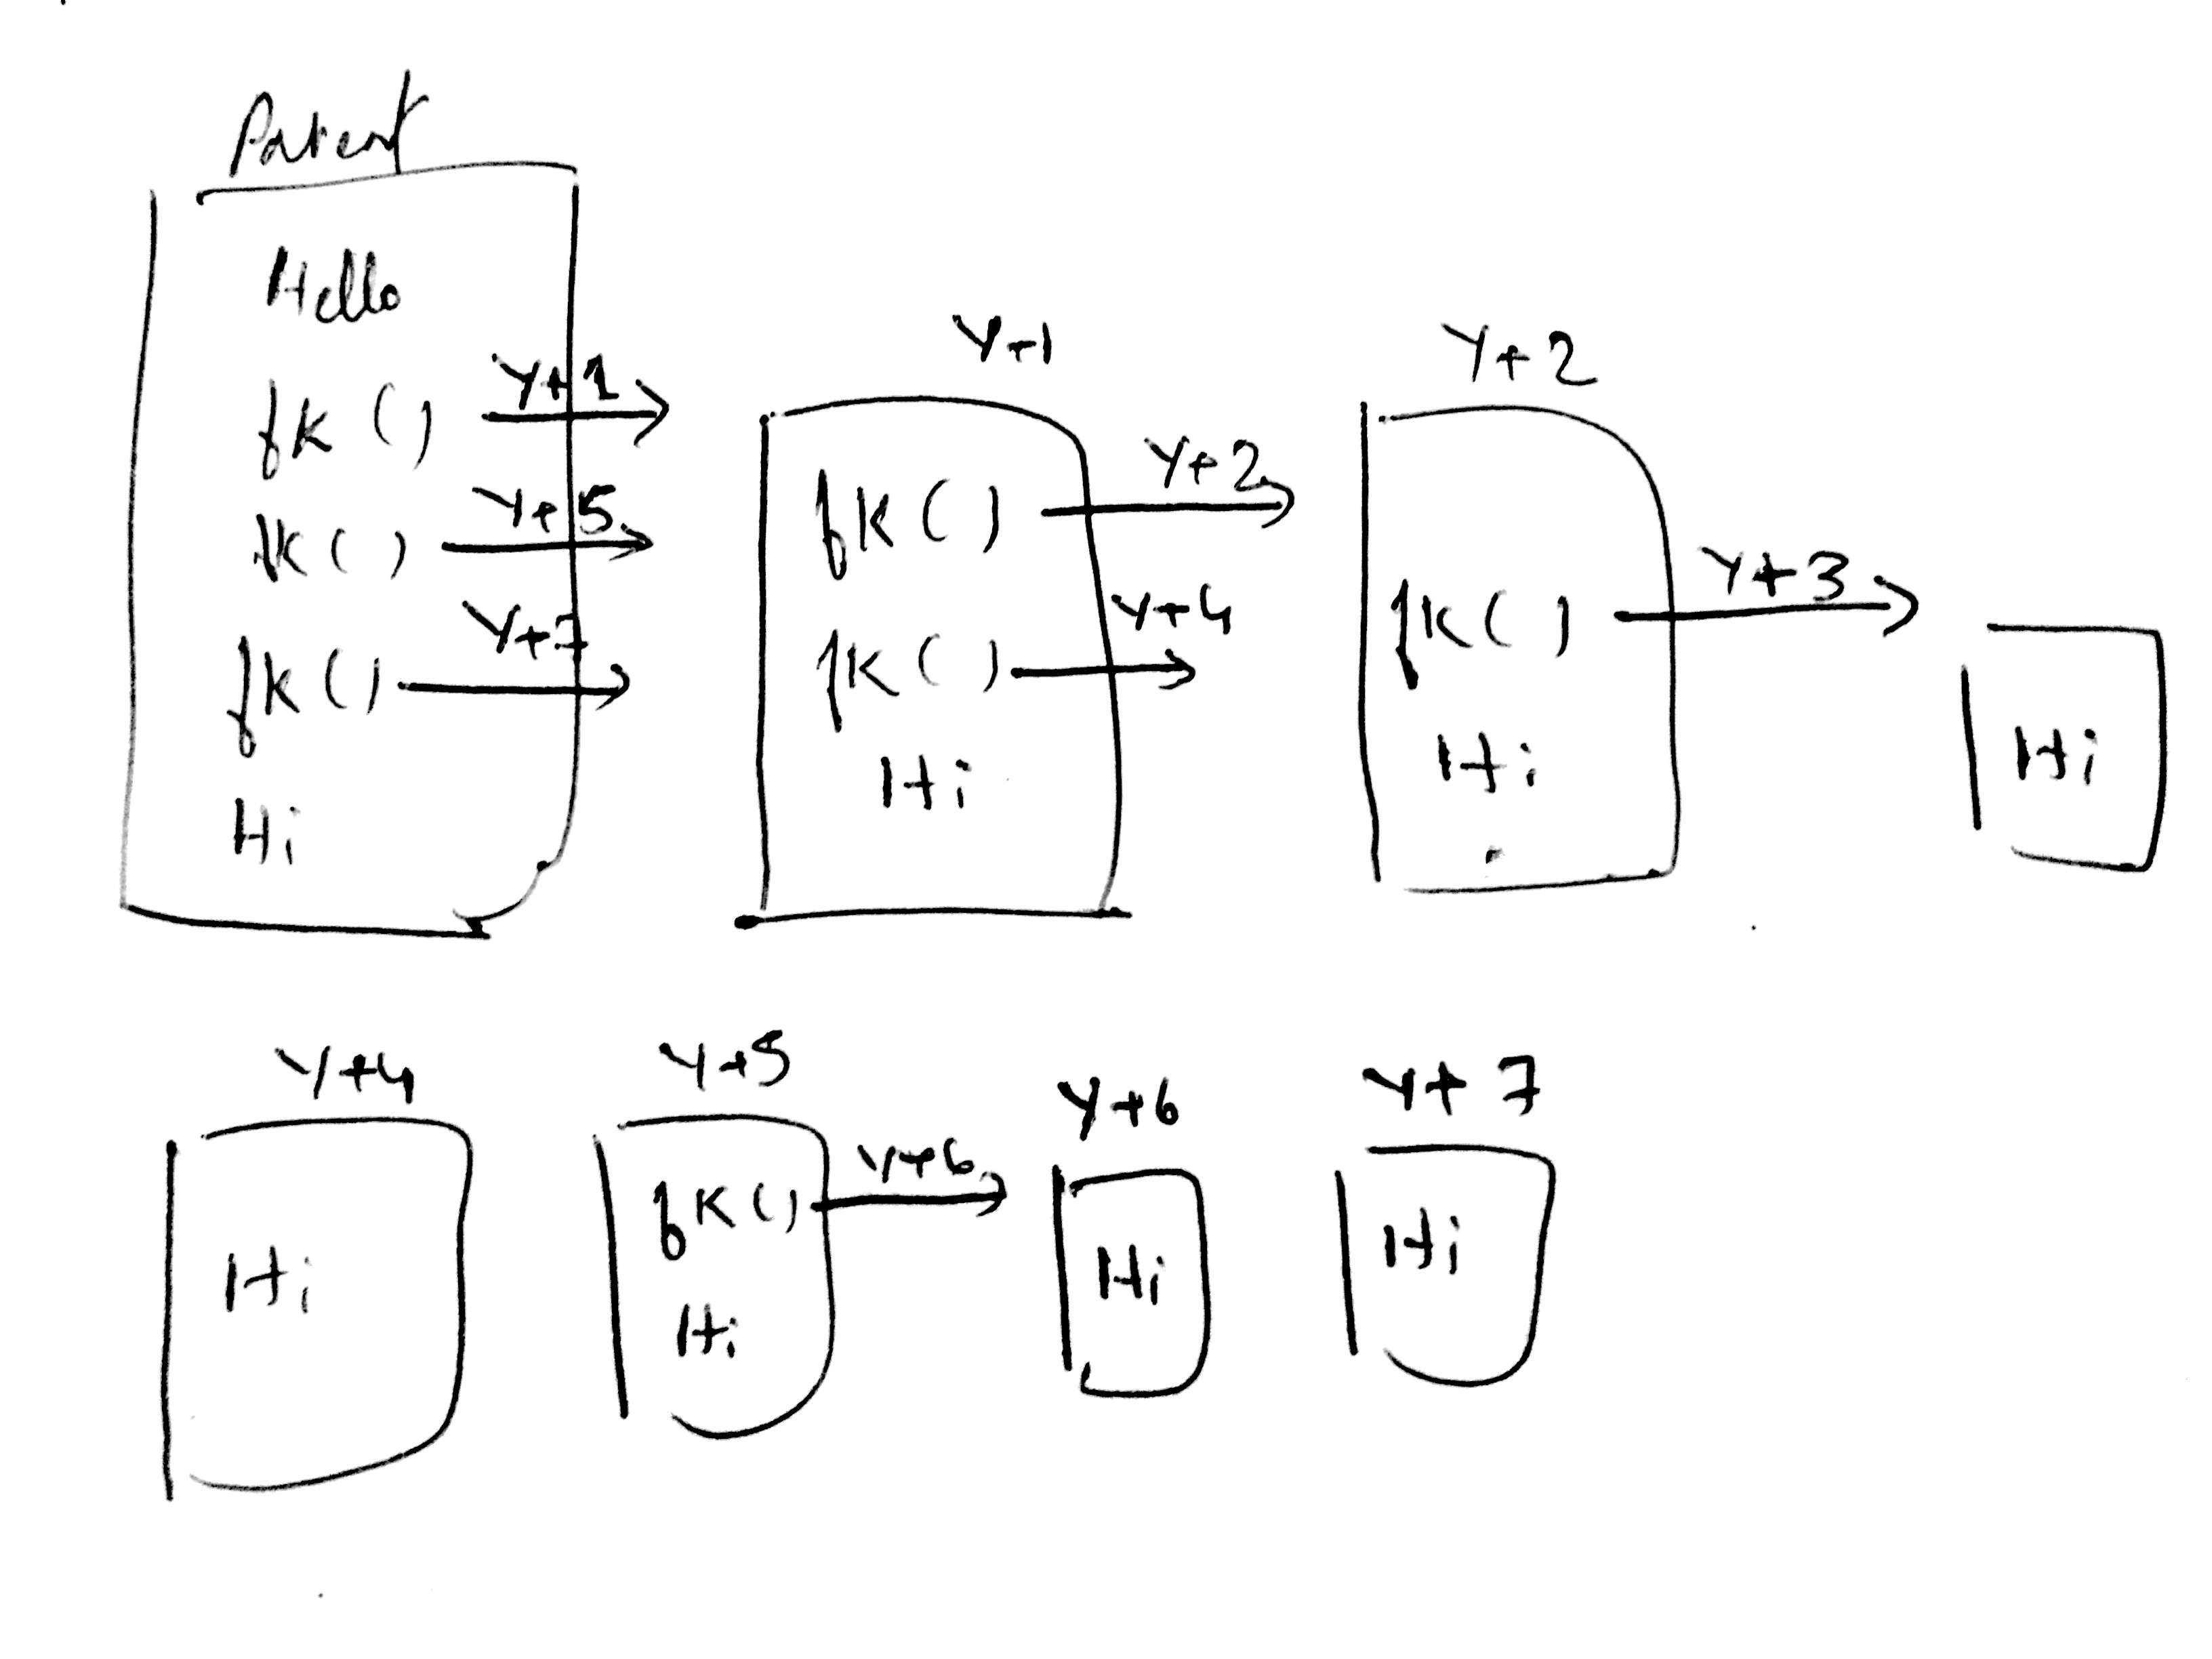 Parent
Hello
fk ()
Y+1
fk ()
Y+5
fk ()
Y+7
Hi
Y+1
fk ()
Y+2
fk ()
Y+4
Hi
Y+2
fk ()
Y+3
Hi
Hi
Y+4
Hi
Y+5
fk ()
Y+6
Hi
Y+6
Hi
Y+7
Hi